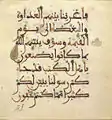 فأغرينا بينهم العداوة
والبغضاء إلى يوم
القيمة وسوف ينبئهم الله
بما كانوا يصنعون يأهل
الكتب قد جاءكم
رسولنا يبين لكم
كثيرا مما كنتم تخفون